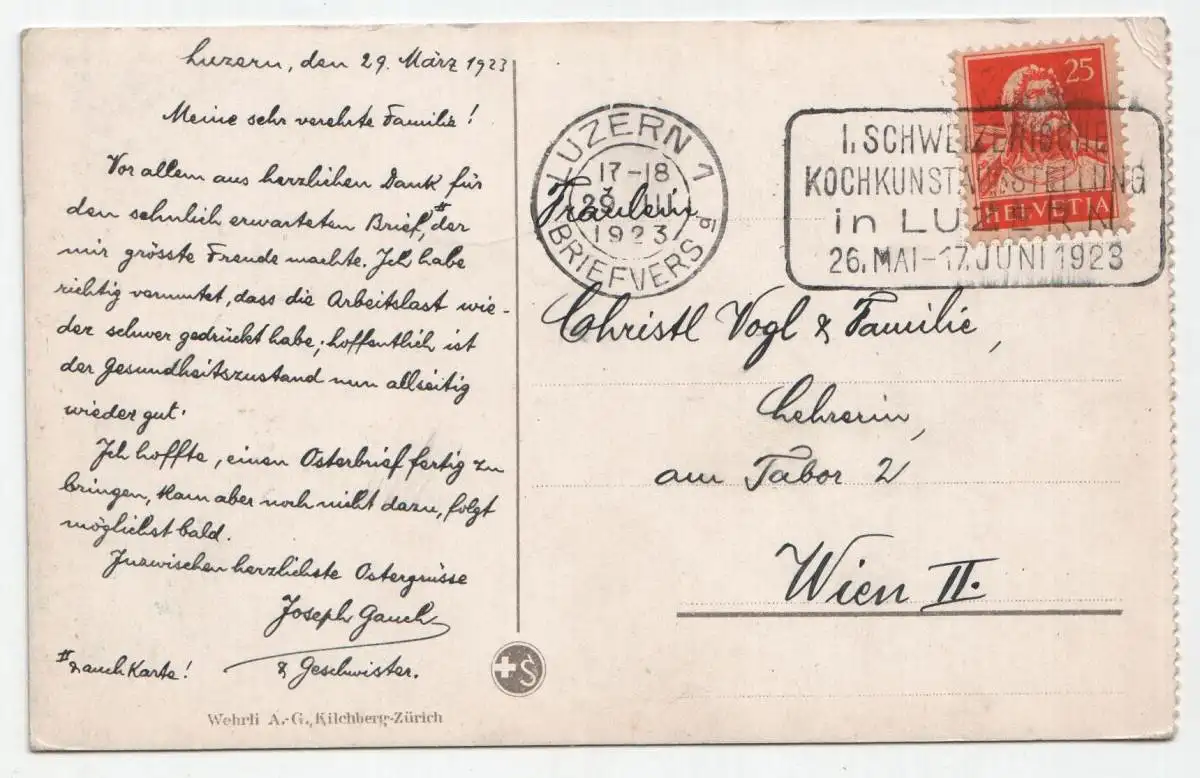 Luzern, den 29. März 1923
Meine sehr verehrte Familie!
Vor allem aus herzlichen Dank für
den sehnlich erwarteten Brief, II der
mir grösste Freude machte. Ich habe
richtig vermutet, dass die Arbeitslast wie-
der schwer gedrückt habe; hoffentlich ist
der Gesundheitszustand nun allseitig
wieder gut.
Ich hoffte, einen Osterbrief fertig zu
bringen, kam aber noch nicht dazu, folgt
möglichst bald.
Inzwischen herzlichste Ostergrüsse
Joseph Gauch
& Geschwister.
II & auch Karte!
Wehrli A.-G., Kilchberg-Zürich
+S
LUZERN 1
17-18
29. III.
1923
BRIEFVERS
I. SCHWEIZERISCHE
KOCHKUNSTAUSSTELLUNG
in LUZERN
26. MAI-17. JUNI 1923
25
HELVETIA
Fräulein
Christl Vogl & Familie,
Lehrerin,
am Tabor 2
Wien II.